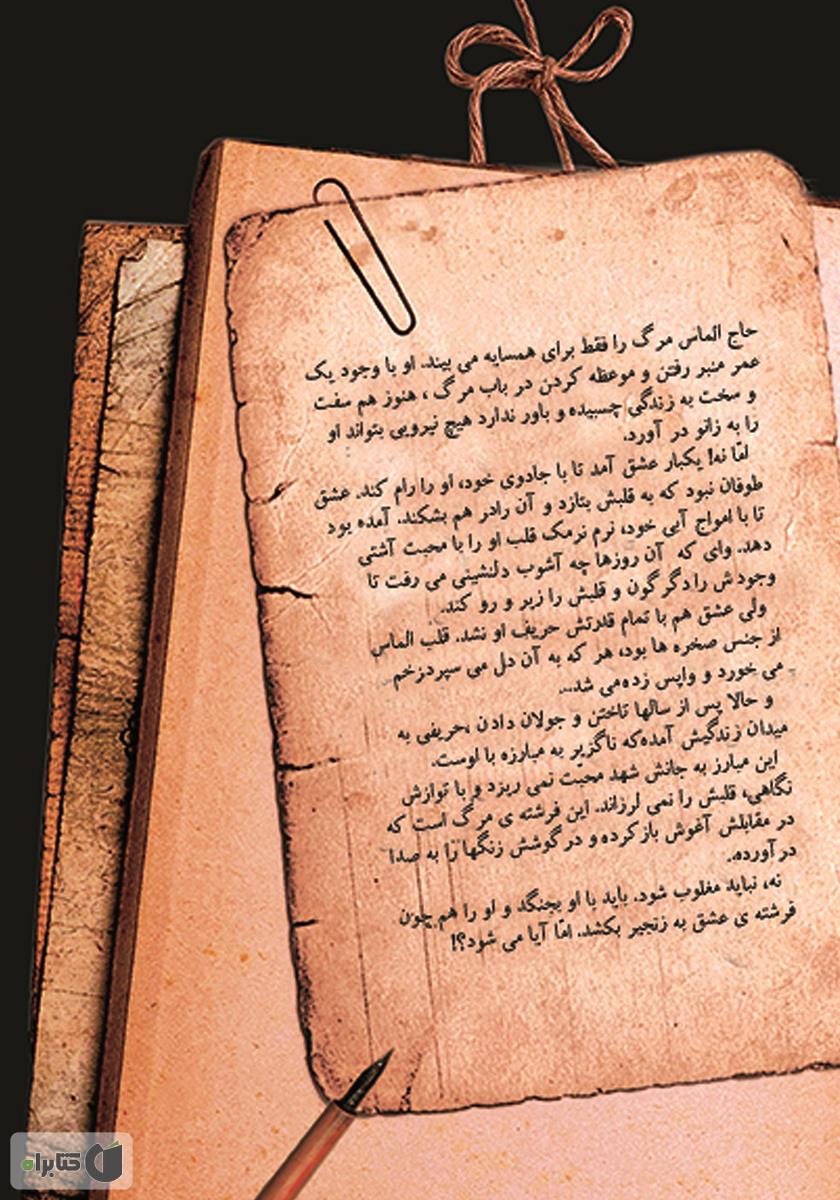 حاج الماس مرگ را فقط برای همسایه می بیند. او با وجود یک
عمر منبر رفتن و موعظه کردن در باب مرگ ، هنوز هم سفت
و سخت به زندگی چسبیده و باور ندارد هیچ نیرویی بتواند او
را به زانو در آورد.
امّا نه! یکبار عشق آمد تا با جادوی خود، او را رام کند. عشق
طوفان نبود که به قلبش بتازد و آن رادر هم بشکند. آمده بود
تا با امواج آبی خود، نرم نرمک قلب او را با محبت آشتی
دهد. وای که آن روزها چه آشوب دلنشینی می رفت تا
وجودش را دگرگون و قلبش را زیر و رو کند.
ولی عشق هم با تمام قدرتش حریف او نشد. قلب الماس
از جنس صخره ها بود، هر که به آن دل می سپردزخم
می خورد و واپس زده‌می شد...
و حالا پس از سالها تاختن و جولان دادن ،حریفی به
میدان زندگیش آمده‌که ناگزیر به مبارزه با اوست.
این مبارز به جانش شهد محبت نمی ریزد و با توازش
نگاهی، قلبش را نمی لرزاند. این فرشته ی مرگ است که
در مقابلش آغوش بازکرده و در گوشش زنگها را به صدا
در آورده.
نه، نباید مغلوب شود. باید با او بجنگد و او را هم چون
فرشته ی عشق به زنجیر بکشد. امّا آیا می شود؟!
کتابراه